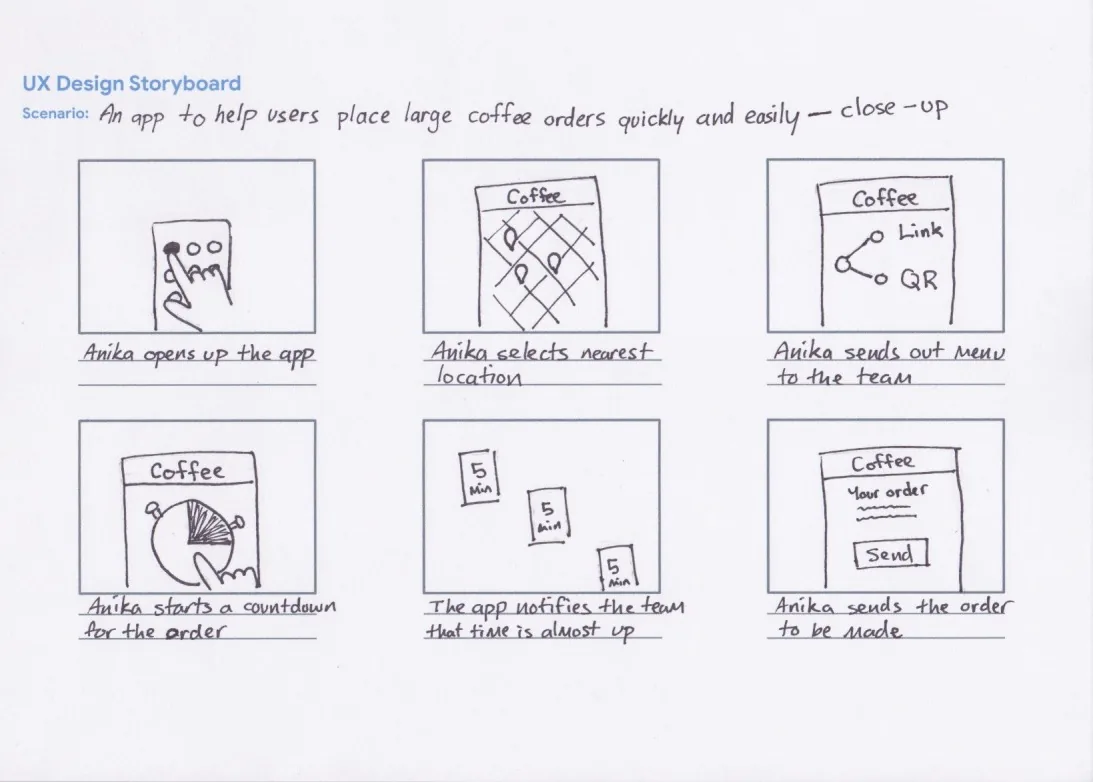 UX Design Storyboard
Scenario: An app to help users place large coffee orders quickly and easily — close-up
Coffee
Coffee
Link
QR
Anika opens up the app
Anika selects nearest
location
Anika sends out menu
to the team
Coffee
5
min
5
min
5
min
Coffee
Your order
Send
Anika starts a countdown
for the order
The app notifies the team
that time is almost up
Anika sends the order
to be made